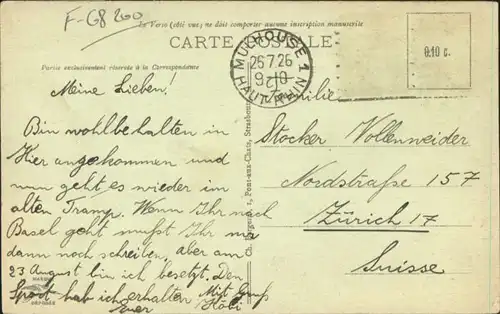 F-68 200
Le Verso (côté vue) ne doit comporter aucune inscription manuscrite
CARTE POSTALE
Partie exclusivement réservée à la Correspondance
MULHOUSE 1
26.7.26
HAUT RHIN
0.10 c.
Meine Lieben!
Bin wohlbehalten in
hier angekommen und
nun geht es wieder im
alten Tramp. Wenn Ihr nach
Basel geht müßt Ihr mir
dann noch schreiben, aber am
23 August bin ich besetzt. Den
Sport hab ich erhalten Mit Gruß
Euer Köbi
Familie
Stocker Vollenweider
Nordstraße 157
Zürich 17
Suisse
Pont-aux-Chats, Strasbourg